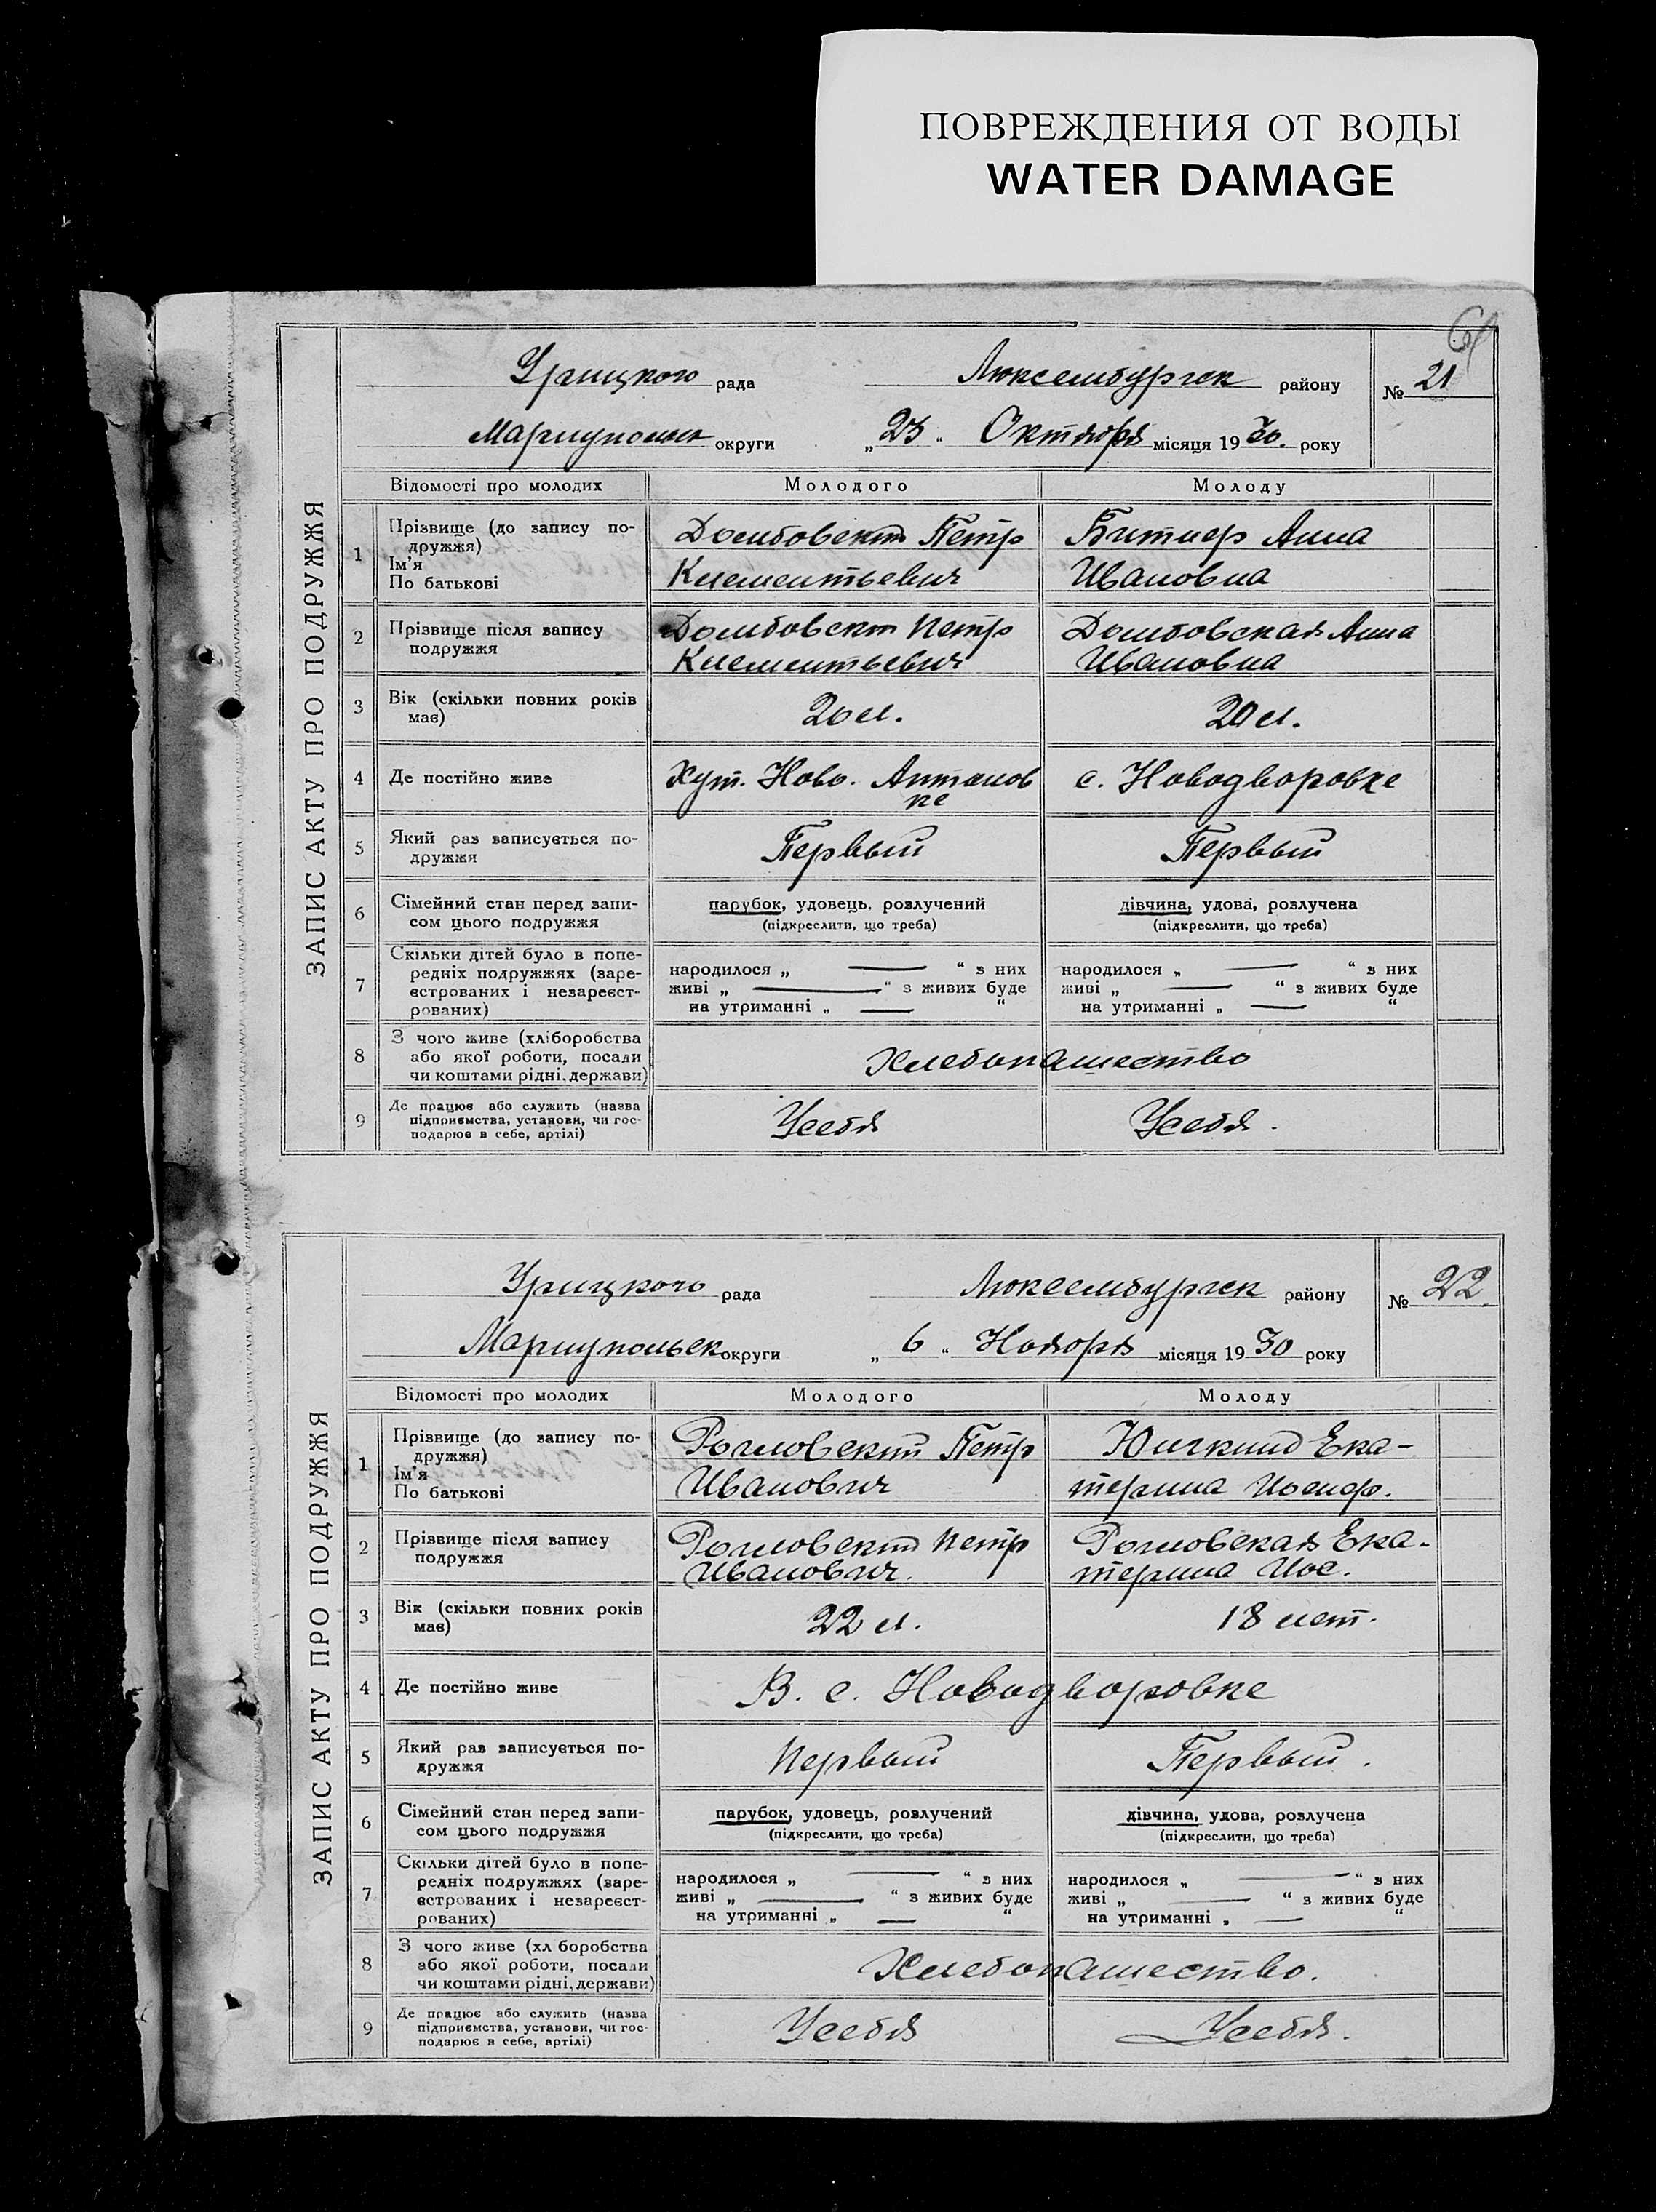 ПОВРЕЖДЕНИЯ ОТ ВОДЫ
WATER DAMAGE
61
ЗАПИС АКТУ ПРО ПОДРУЖЖЯ
Урицкого рада Люксембургск району № 21
Мариупольск округи „23“ Октября місяця 1930. року
Відомості про молодих Молодого Молоду
1 Прізвище (до запису по-
дружжя)
Ім’я
По батькові
Домбовский Петр
Климентьевич
Битнер Анна
Ивановна
2 Прізвище після запису
подружжя
Домбовский Петр
Климентьевич
Домбовская Анна
Ивановна
3 Вік (скільки повних років
має)
20 л.
20 л.
4 Де постійно живе
Хут. Ново. Антонов
ке
с. Новодворовке
5 Який раз записується по-
дружжя
Первый
Первый
6 Сімейний стан перед запи-
сом цього подружжя
парубок, удовець, розлучений
(підкреслити, що треба)
дівчина, удова, розлучена
(підкреслити, що треба)
7 Скільки дітей було в попе-
редніх подружжях (заре-
єстрованих і незареєст-
рованих)
народилося „ — “ з них
живі „ — “ з живих буде
на утриманні „ — “
народилося „ — “ з них
живі „ — “ з живих буде
на утриманні „ — “
8 З чого живе (хліборобства
або якої роботи, посади
чи коштами рідні, держави)
Хлебопашество
9 Де працює або служить (назва
підприємства, установи, чи гос-
подарює в себе, артілі)
Усебя
Усебя.
ЗАПИС АКТУ ПРО ПОДРУЖЖЯ
Урицкого рада Люксембургск району № 22
Мариупольск округи „6“ Ноября місяця 1930 року
Відомості про молодих Молодого Молоду
1 Прізвище (до запису по-
дружжя)
Ім’я
По батькові
Петр
Иванович
Ека-
терина Иосиф.
2 Прізвище після запису
подружжя
Петр
Иванович.
Ека-
терина Иос.
3 Вік (скільки повних років
має)
22 л.
18 лет.
4 Де постійно живе
В. с. Новодворовке
5 Який раз записується по-
дружжя
Первый
Первый.
6 Сімейний стан перед запи-
сом цього подружжя
парубок, удовець, розлучений
(підкреслити, що треба)
дівчина, удова, розлучена
(підкреслити, що треба)
7 Скільки дітей було в попе-
редніх подружжях (заре-
єстрованих і незареєст-
рованих)
народилося „ — “ з них
живі „ — “ з живих буде
на утриманні „ — “
народилося „ — “ з них
живі „ — “ з живих буде
на утриманні „ — “
8 З чого живе (хл боробства
або якої роботи, посади
чи коштами рідні, держави)
Хлебопашество.
9 Де працює або служить (назва
підприємства, установи, чи гос-
подарює в себе, артілі)
Усебя
Усебя.